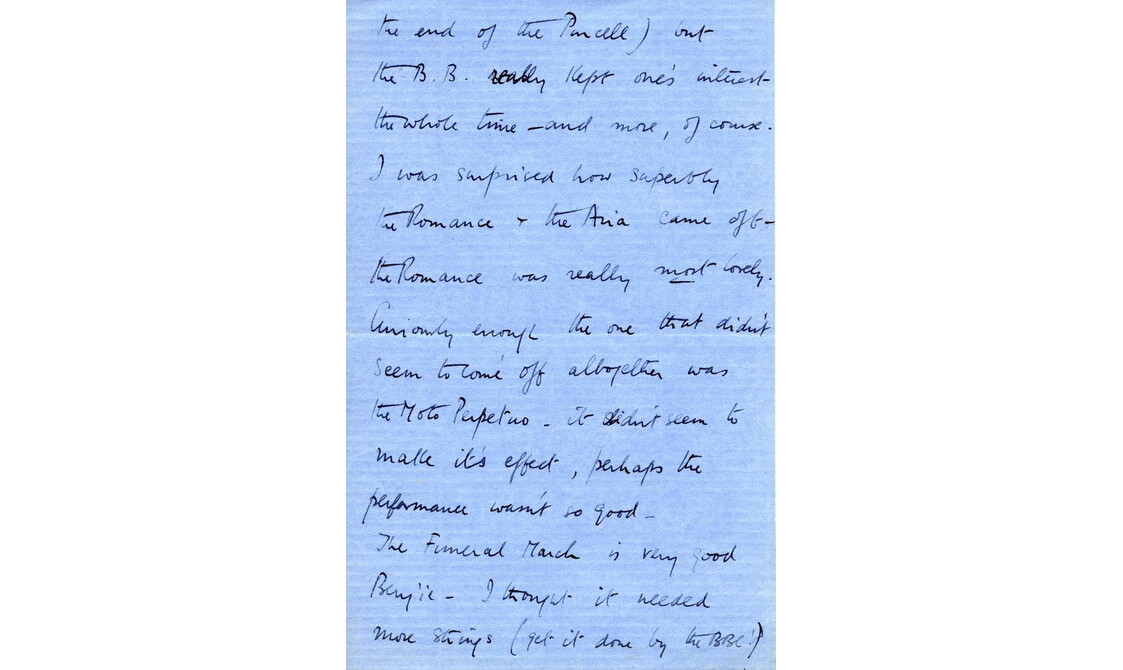 the end of the Purcell) but
the B.B. really kept one's interest
the whole time – and more, of course.
I was surprised how superbly
the Romance & the Aria came off –
the Romance was really most lovely.
Curiously enough the one that didn't
seem to come off altogether was
the Moto Perpetuo – it didn't seem to
make it's effect, perhaps the
performance wasn't so good –
The Funeral March is very good
Benjie – I thought it needed
more strings (get it done by the BBC!)